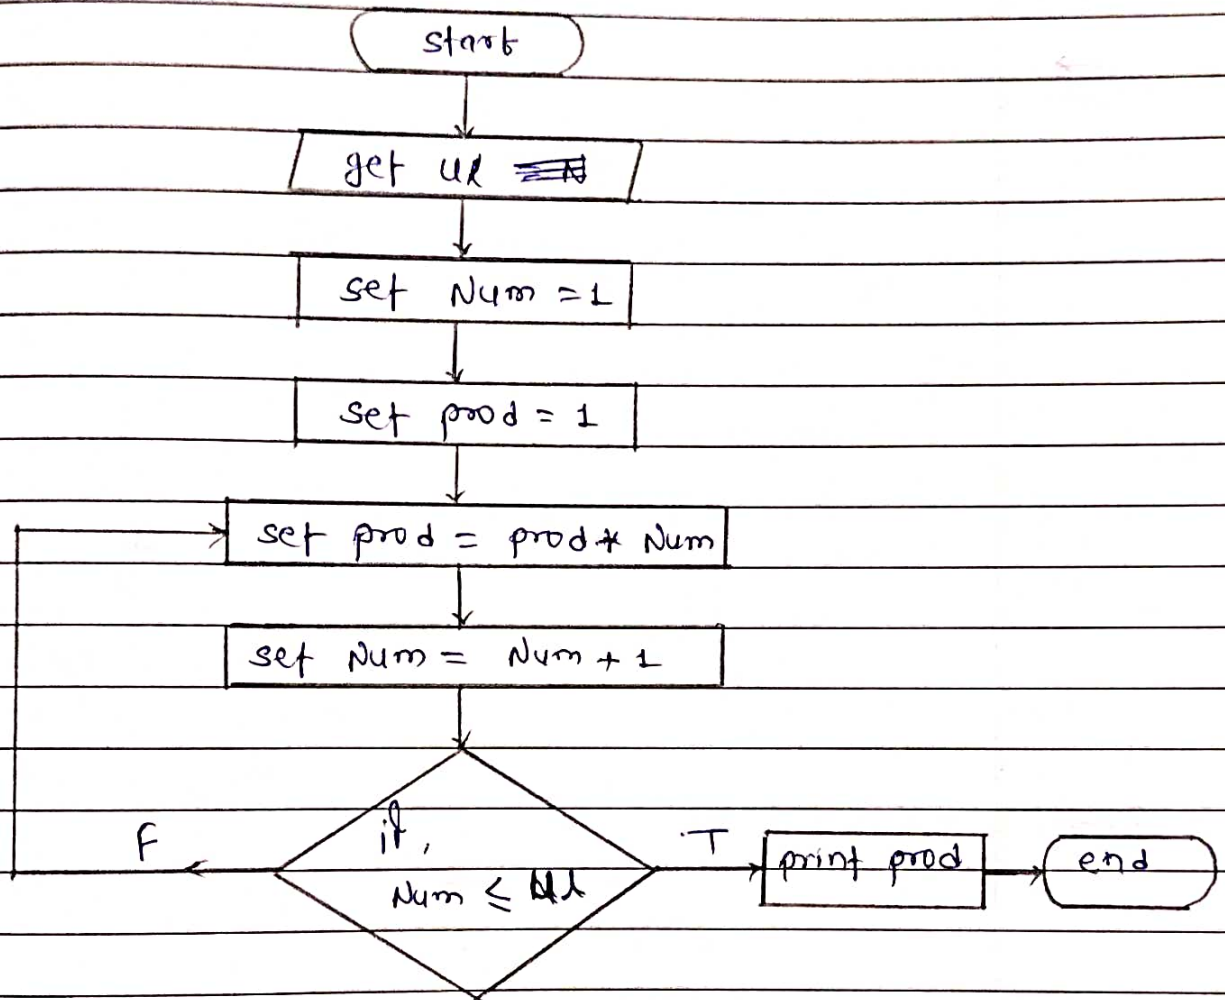 start
get UL
set Num = 1
set prod = 1
set prod = prod * Num
set Num = Num + 1
F
if,
Num ≤ UL
T
print prod
end